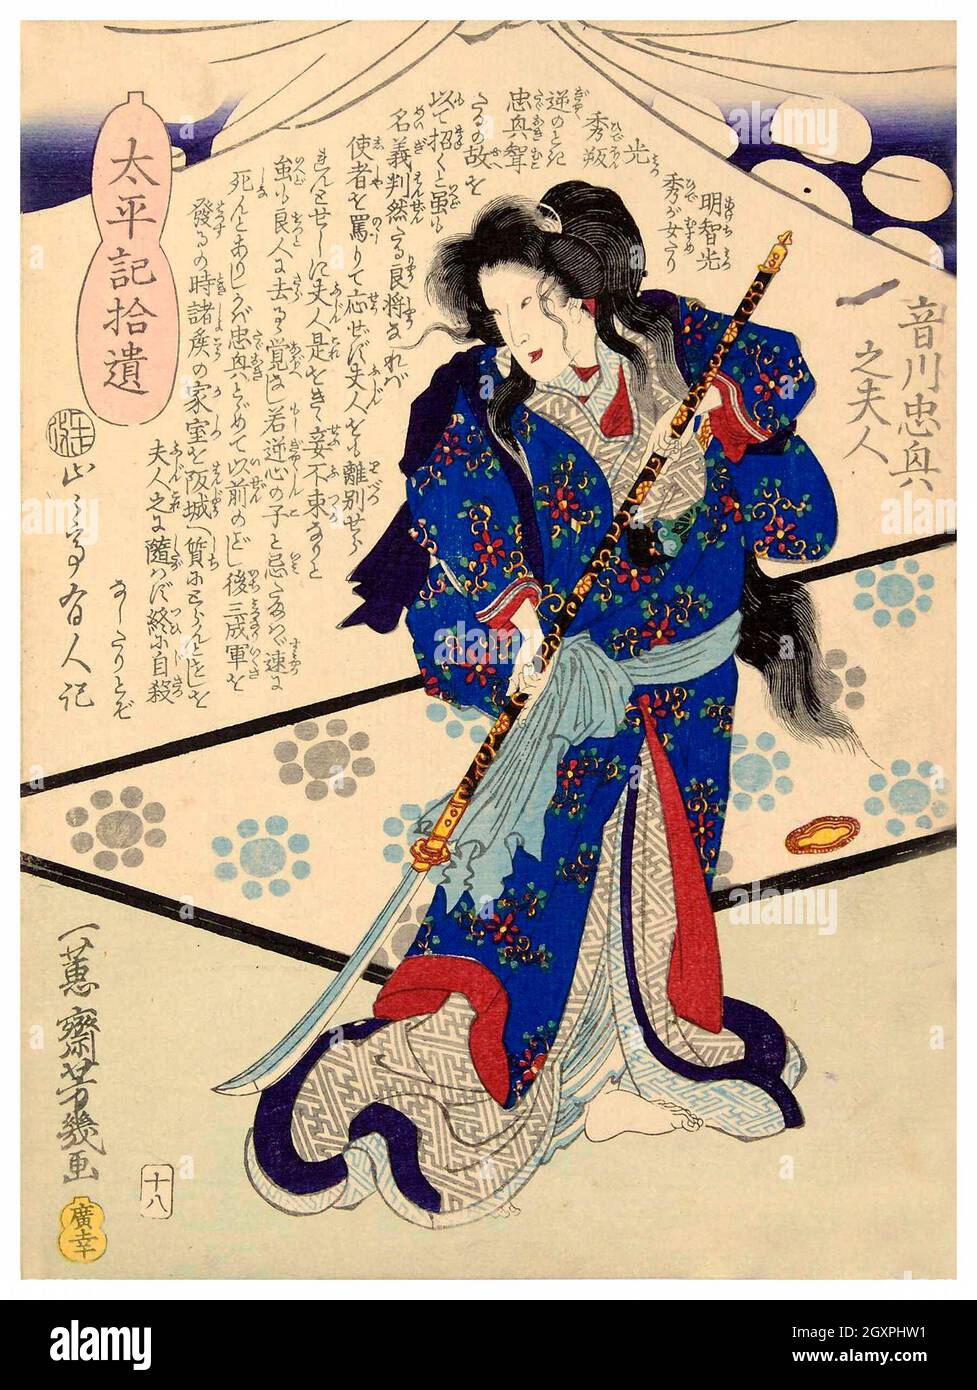 太平記拾遺
音川忠兵
之夫人
明智光
秀が女たり
光
秀叛
逆のとき
忠兵聟
たるの故を
以て招くと雖も
名義判然たる良将なれバ
使者を罵りて応ぜず夫人をも離別せら
れんとせしに夫人是をきゝ妾不束なりと
雖も良人に去るゝ覚なし若逆心の子と忌たまハゞ速に
死んとありしが忠兵ハとゞめて以前の如し後三成軍を
發るの時諸侯の家室を阪城へ質にとらんとせしを
夫人之に随はず終に自殺
なしたりとぞ
山々亭有人記
一蕙齋芳幾画
十八
廣幸
alamy
Image ID: 2GXPHW1
www.alamy.com